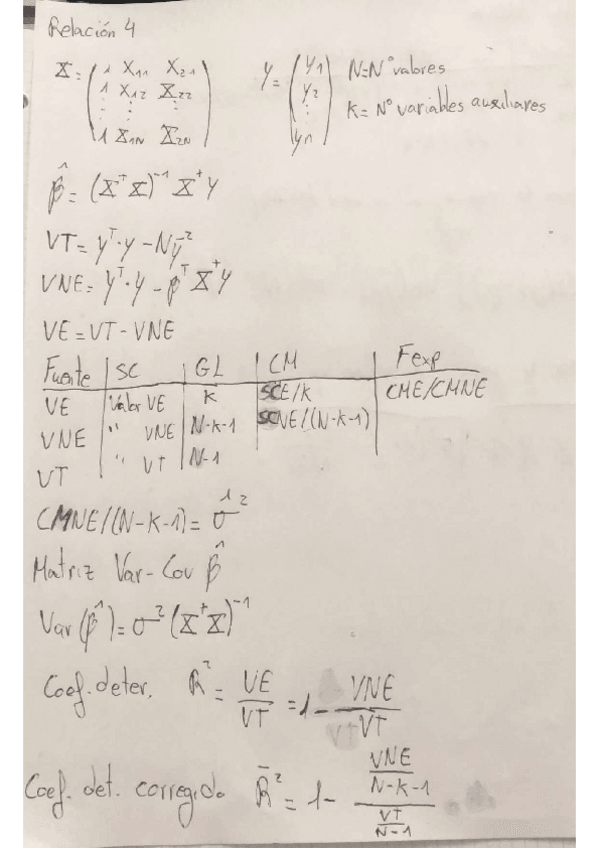 Relación 4
X = (1 X₁₁ X₂₁ Y = (y₁ N=Nº valores
1 X₁₂ X₂₂ y₂ K= Nº variables auxiliares
⋮ ⋮ ⋮ ⋮
1 X₁N X₂N) yn)
β̂ = (X⁺X)⁻¹ X⁺Y
VT = yᵀ·y - Nȳ²
VNE = yᵀ·y - β̂ᵀ X⁺Y
VE = VT - VNE
Fuente SC GL CM Fexp
VE Valor VE K SCE/K CME/CMNE
VNE " VNE N-k-1 SCNE/(N-k-1)
VT " VT N-1
CMNE/(N-k-1) = σ̂²
Matriz Var-Cov β̂
Var(β̂) = σ²(X⁺X)⁻¹
Coef. deter. R² = VE/VT = 1 - VNE/VT
Coef. det. corregido R̄² = 1 - (VNE/(N-k-1))/(VT/(N-1))